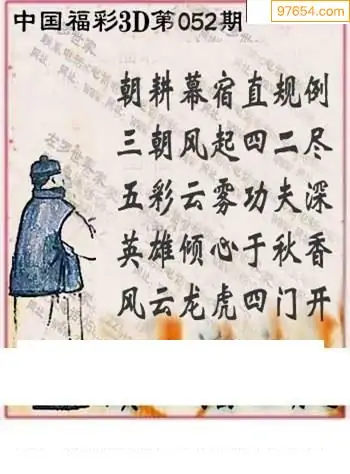 97654.com
中国福彩3D第052期
朝耕幕宿直规例
三朝风起四二尽
五彩云雾功夫深
英雄倾心于秋香
风云龙虎四门开